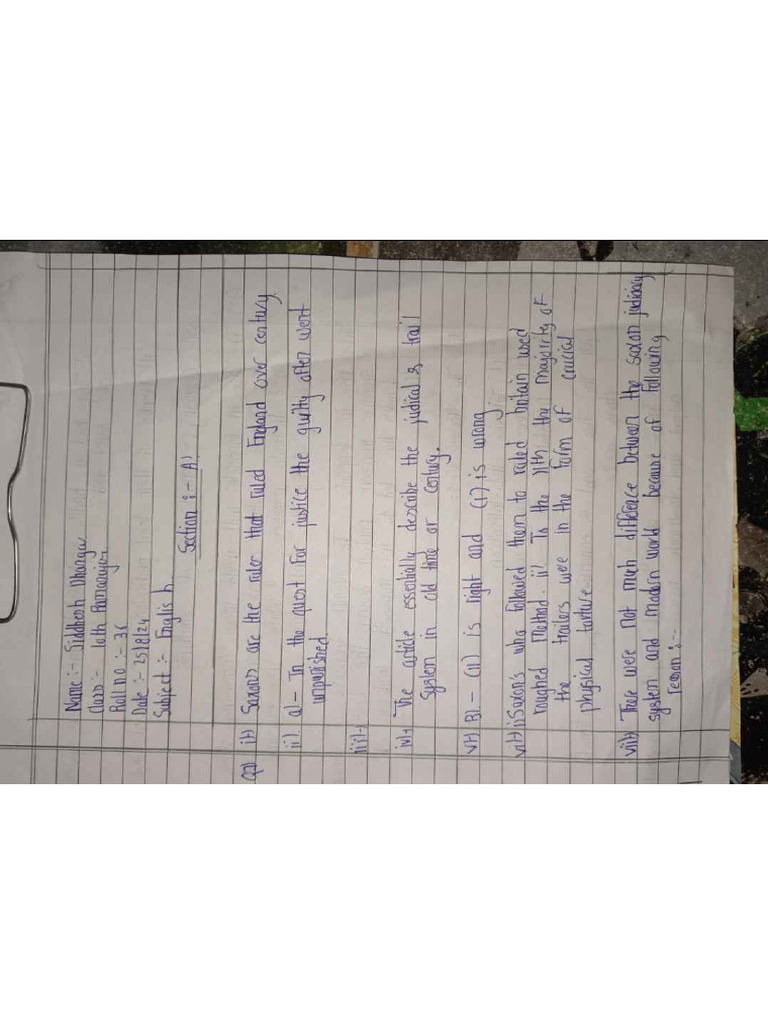 Name :- Siddhesh
Class :- 10th Ramanujan
Roll no :- 36
Date :- 25/8/24
Subject :- English
Section :- A!
Q2) i) Saxons are the ruler that ruled England over century
ii) a) - In the quest for justice the guilty often went
unpunished
iii) -
iv) The article essentially describe the judical & trail
System in old time or century.
v) B) - (ii) is right and (i) is wrong
vi) i) Saxon's who followed them to ruled britain used
roughed method. ii) In the 11th the majority of
the trailers were in the form of crucial
physical torture
vii) There were not much difference between the saxon judiciary
system and modern world because of following
reason :-